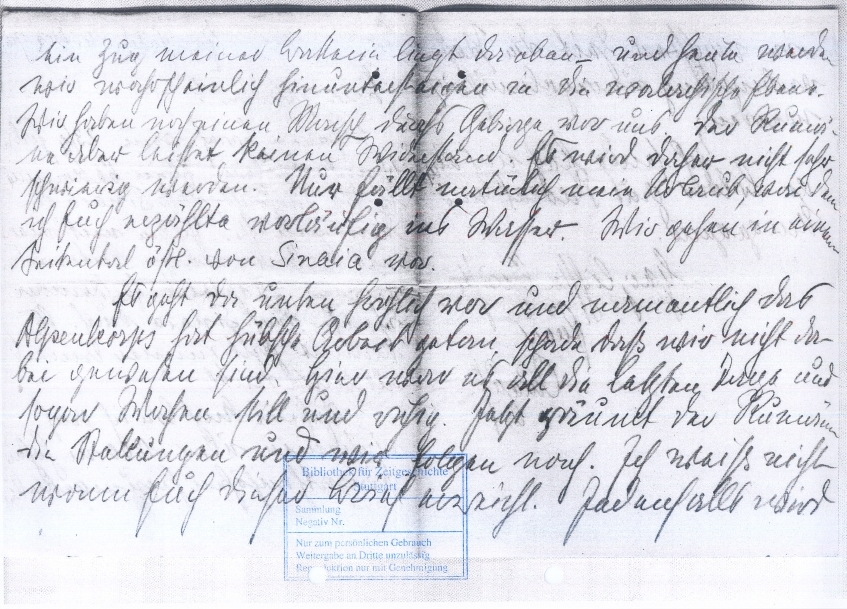 Ein Zug meiner Batterie liegt da oben – und heute werden
wir wahrscheinlich hinuntersteigen in die walachische Ebene.
Wir haben noch einen Marsch durchs Gebirge vor uns, der Rumä-
ne aber leistet keinen Widerstand. Es wird daher nicht sehr
schwierig werden. Nur fällt natürlich mein Urlaub, von dem
ich Euch erzählte vorläufig ins Wasser. Wir gehen in einem
Seitental östl. von Sinaia vor.
Es geht da unten herrlich vor und namentlich das
Alpenkorps hat hübsche Arbeit getan, schade daß wir nicht da-
bei gewesen sind. Hier war es all die letzten Tage und
sogar Wochen still und ruhig. Jetzt räumt der Rumäne
die Stellungen und wir folgen nach. Ich weiß nicht
wann Euch dieser Brief erreicht. Jedenfalls wird
Bibliothek für Zeitgeschichte
Stuttgart
Sammlung
Negativ Nr.
Nur zum persönlichen Gebrauch
Weitergabe an Dritte unzulässig
Reproduktion nur mit Genehmigung